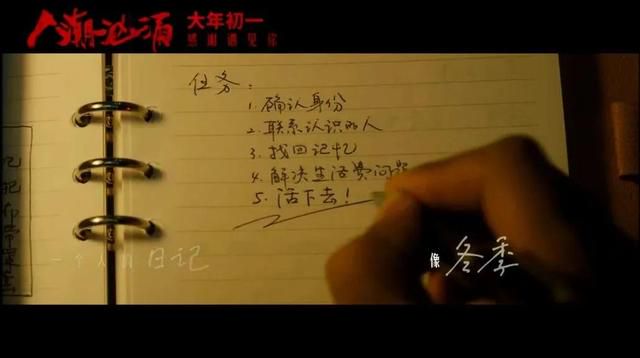 人潮汹涌
大年初一
感谢遇见你
任务:
1. 确认身份
2. 联系认识的人
3. 找回记忆
4. 解决生活费问题
5. 活下去!
一个人的日记
像 冬季